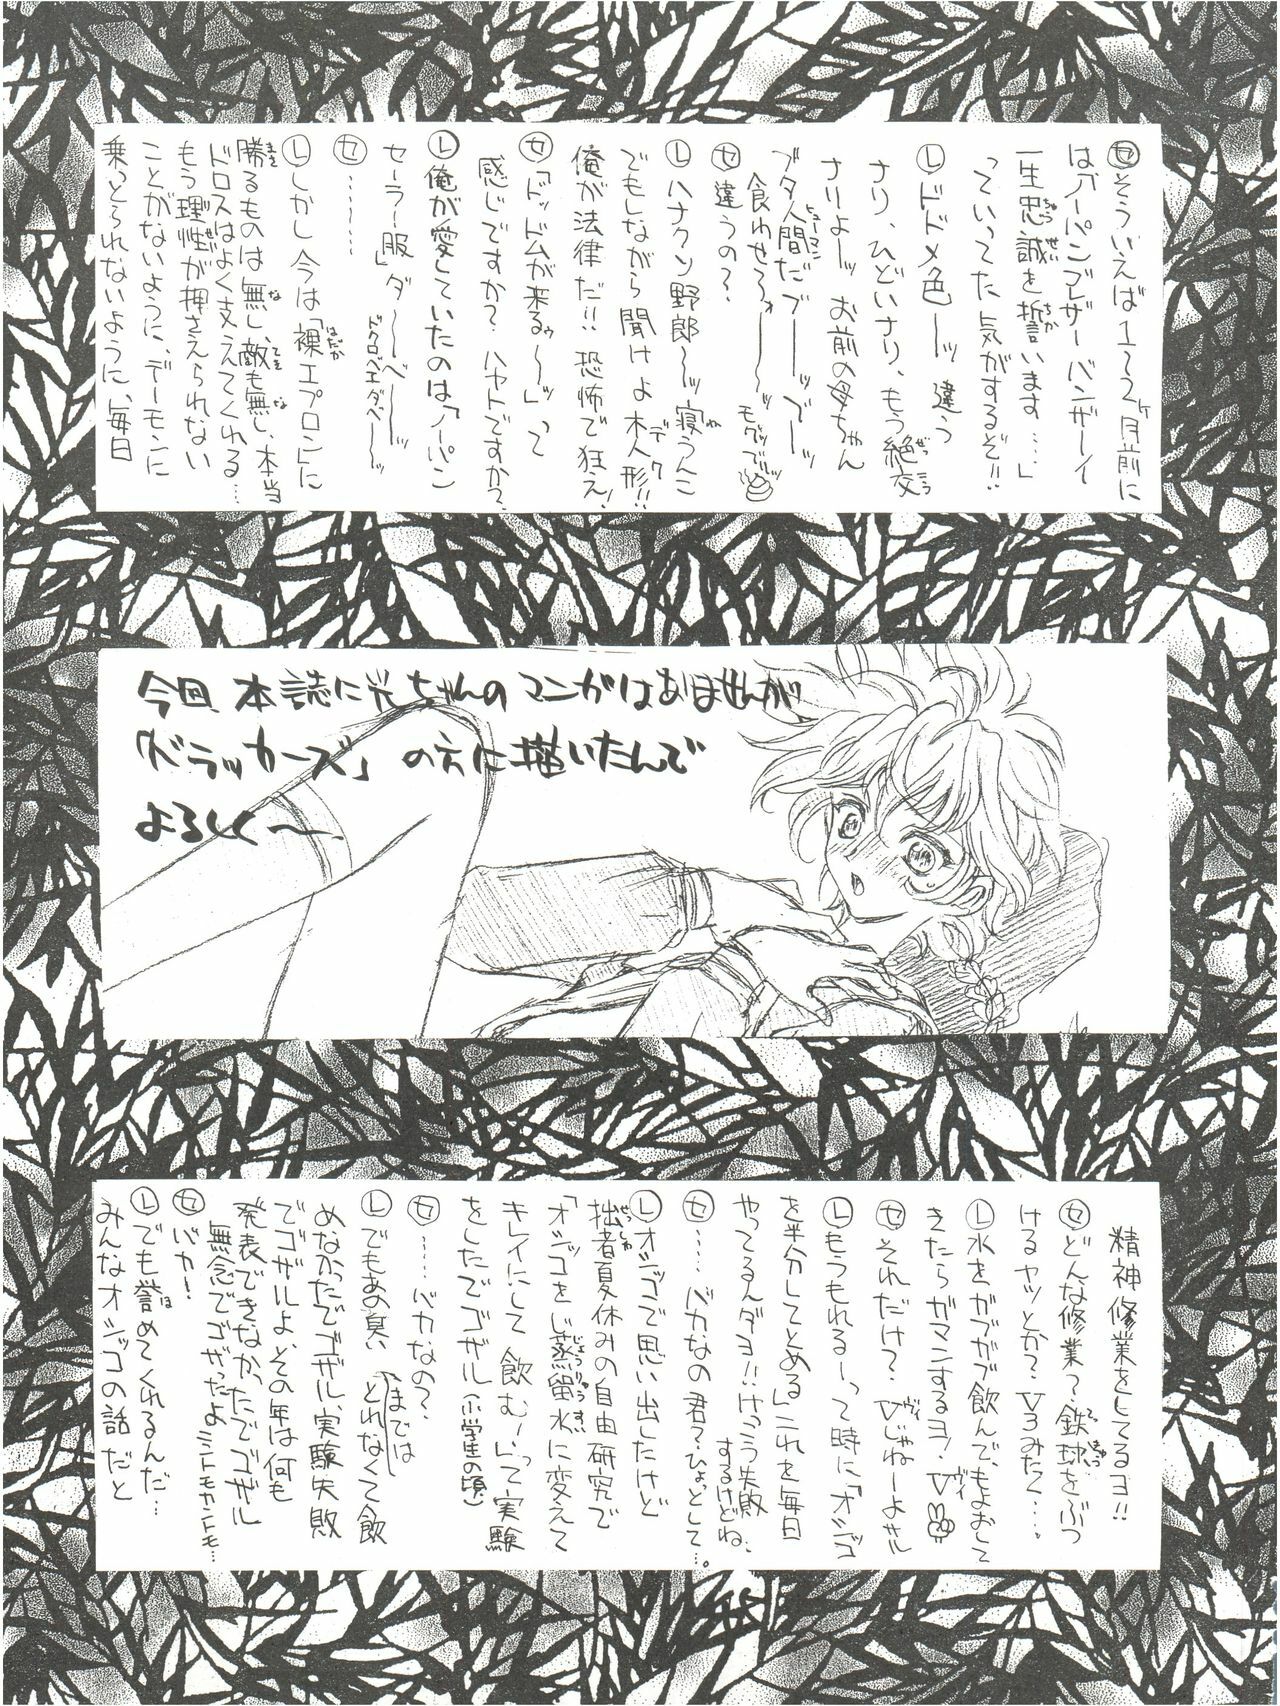 ㋝そういえば1〜2ヶ月前に
は「ノーパンブレザーバンザーイ
一生忠誠を誓います……」
っていってた気がするぞ!!
Ⓛドドメ色ーッ 違う
ナリ、ひどいナリ、もう絶交
ナリよーッ お前の母ちゃん
ブタ人間だブーッブーッ
食わせろォ〜〜ッモグッ
㋝違うの?
Ⓛハナクソ野郎〜ッ寝うんこ
でもしながら聞けよ木人形!!
俺が法律だ!!恐怖で狂え!
㋝「ドッドムが来るゥ〜ッ」って
感じですか?ハヤトですか?
Ⓛ俺が愛していたのは「ノーパン
セーラー服」ダ〜〜ベ〜〜ッ
ドクロベエダベ〜〜ッ
㋝…………
Ⓛしかし今は「裸エプロン」に
勝るものは無し、敵も無し、本当
ドロスはよく支えてくれる…
もう理性が押さえられない
ことがないように、デーモンに
乗っとられないように、毎日
今回、本誌に光ちゃんのマンガはありませんが、
「ドラッカーズ」の方に描いたんで
よろしく〜
精神修業をしてるヨ!!
㋝どんな修業?鉄球をぶつ
けるヤツとか?V3みたく…。
Ⓛ水をガブガブ飲んで、もよおして
きたらガマンするヨ!V
㋝それだけ?Vじゃねーよサル
Ⓛもうもれるーって時に「オシッコ
を半分してとめる」これを毎日
やってるんダヨ!!けっこう失敗
するけどね、
㋝……バカなの君?ひょっとして…。
Ⓛオシッコで思い出したけど
拙者夏休みの自由研究で
「オシッコをじょうりゅうすい蒸留水に変えて
キレイにして飲む」って実験
をしたでゴザル(小学生の頃)
㋝……バカなの?
Ⓛでもあの臭いまではとれなくて飲
めなかったでゴザル、実験失敗
でゴザルよ、その年は何も
発表できなかったでゴザル
無念でゴザったよニントモカントモ…
㋝バカ!
Ⓛでも誉めてくれるんだ…
みんなオシッコの話だと